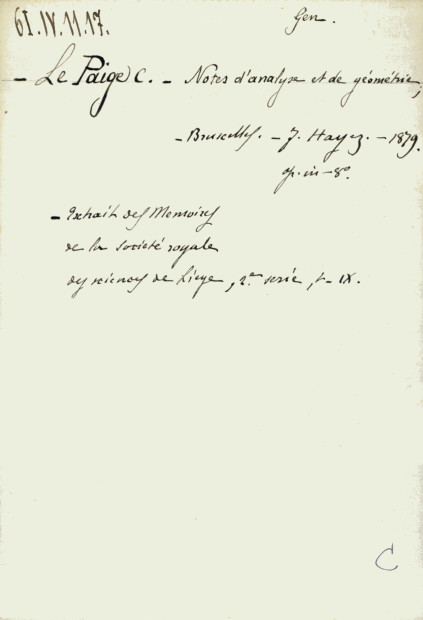 61.IV.11.17.
Gen.
— Le Paige C. — Notes d'analyse et de géométrie;
— Bruxelles. — J. Hayez. — 1879.
op. in-8°.
— Extrait des Memoires
de la Société royale
des sciences de Liége, 2.e serie, t. IX.
C